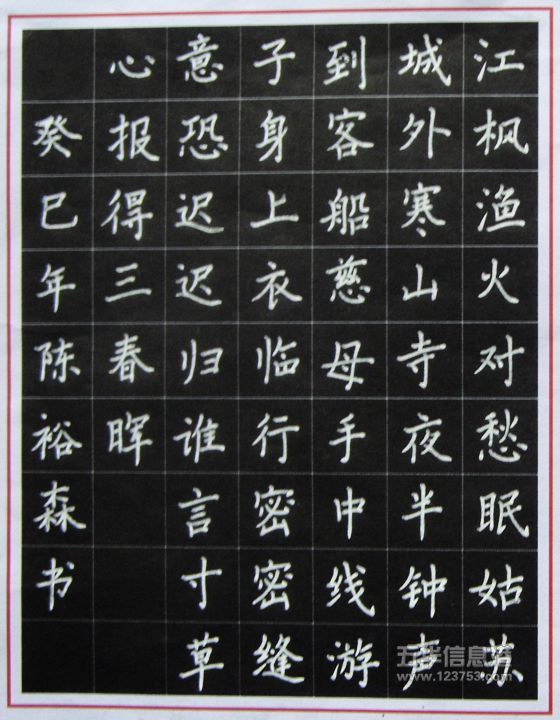 江枫渔火对愁眠姑苏
城外寒山寺夜半钟声
到客船慈母手中线游
子身上衣临行密密缝
意恐迟迟归谁言寸草
心报得三春晖
癸巳年陈裕森书
五华信息港
www.123753.com